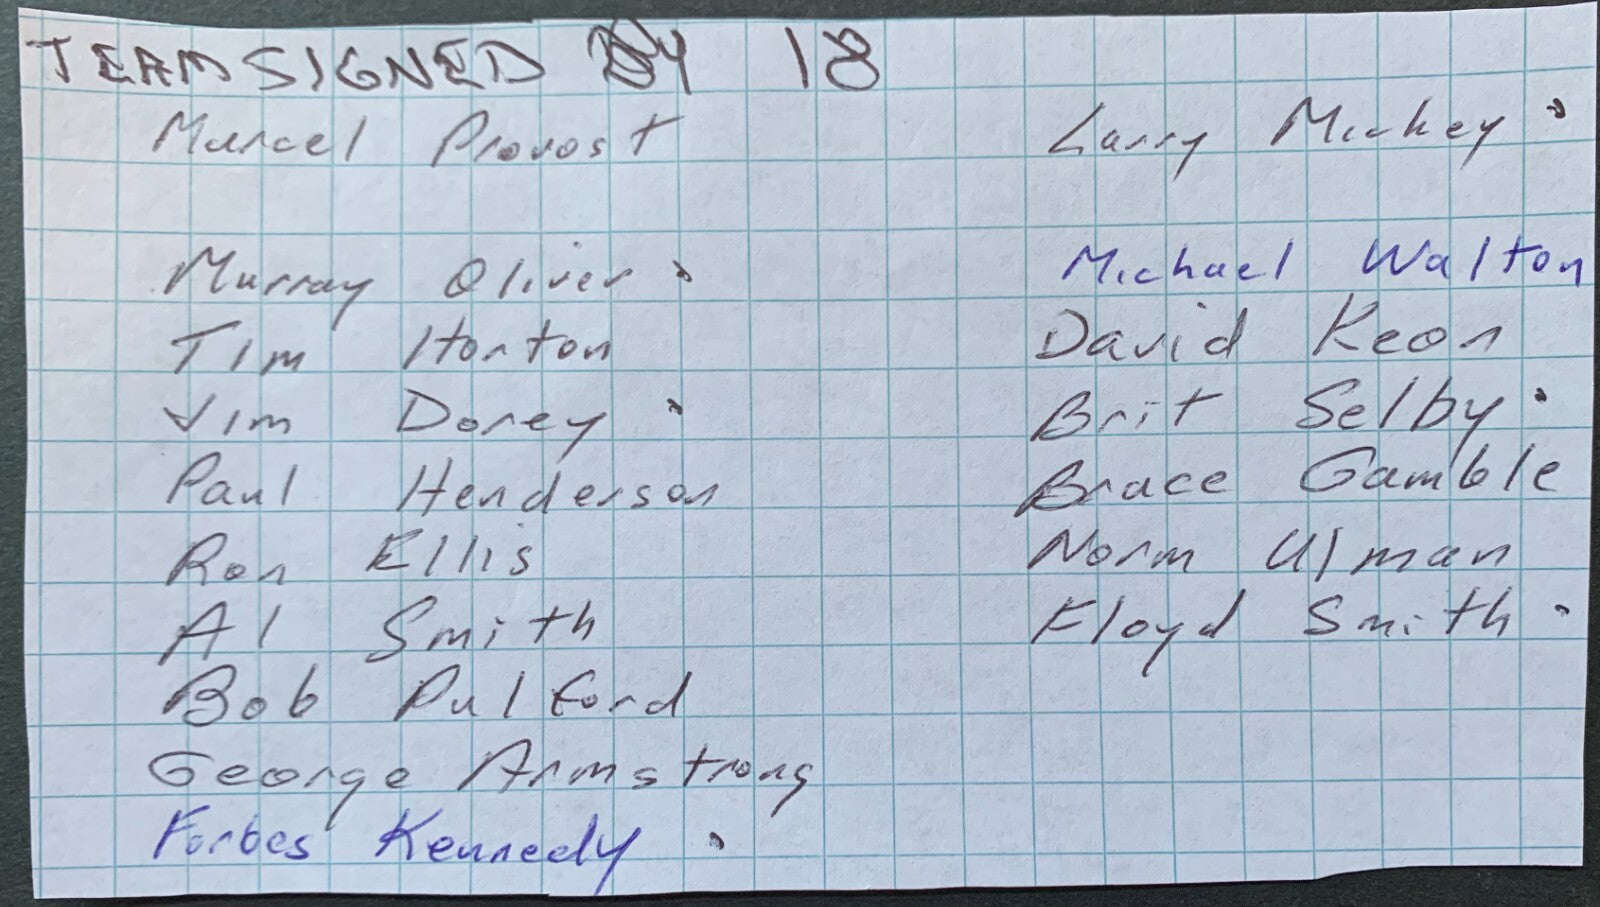 TEAM SIGNED By 18
Marcel Provost
Larry Mickey
Murray Oliver
Michael Walton
Tim Horton
David Keon
Jim Dorey
Brit Selby
Paul Henderson
Brace Gamble
Ron Ellis
Norm Ulman
Al Smith
Floyd Smith
Bob Pulford
George Armstrong
Forbes Kennedy